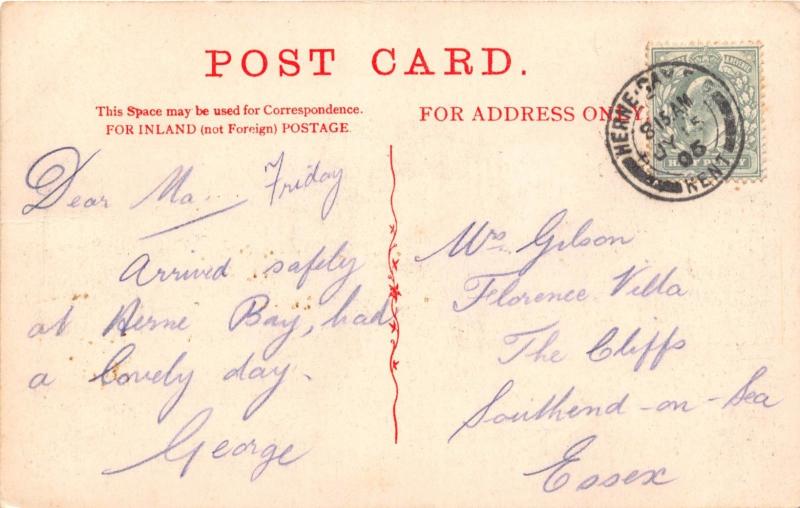 POST CARD.
This Space may be used for Correspondence.
FOR INLAND (not Foreign) POSTAGE.
FOR ADDRESS ONLY.
HERNE·BAY
8.15AM
JY
05
KENT
HALFPENNY
Dear Ma... Friday
Arrived safely
at Herne Bay, had
a lovely day.
George
Mrs Gilson
Florence Villa
The Cliffs
Southend-on-Sea
Essex